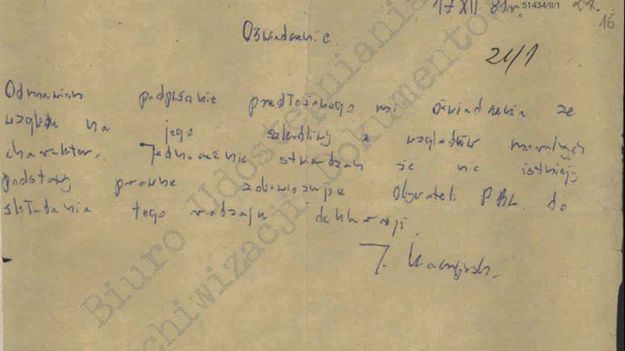 17 XII 81r.
51434/II/1
24.
16
Oświadczenie
21/1
Odmawiam podpisanie predłożonego mi oświadczenia ze
względu na jego szkodliwy z względów moralnych
charakter. Jednocześnie stwierdzam że nie istnieją
podstawy prawne zobowiązujące Obywateli PRL do
składania tego rodzaju deklaracji.
J. Kaczyński
Biuro Udostępniania
Archiwizacji Dokumentów